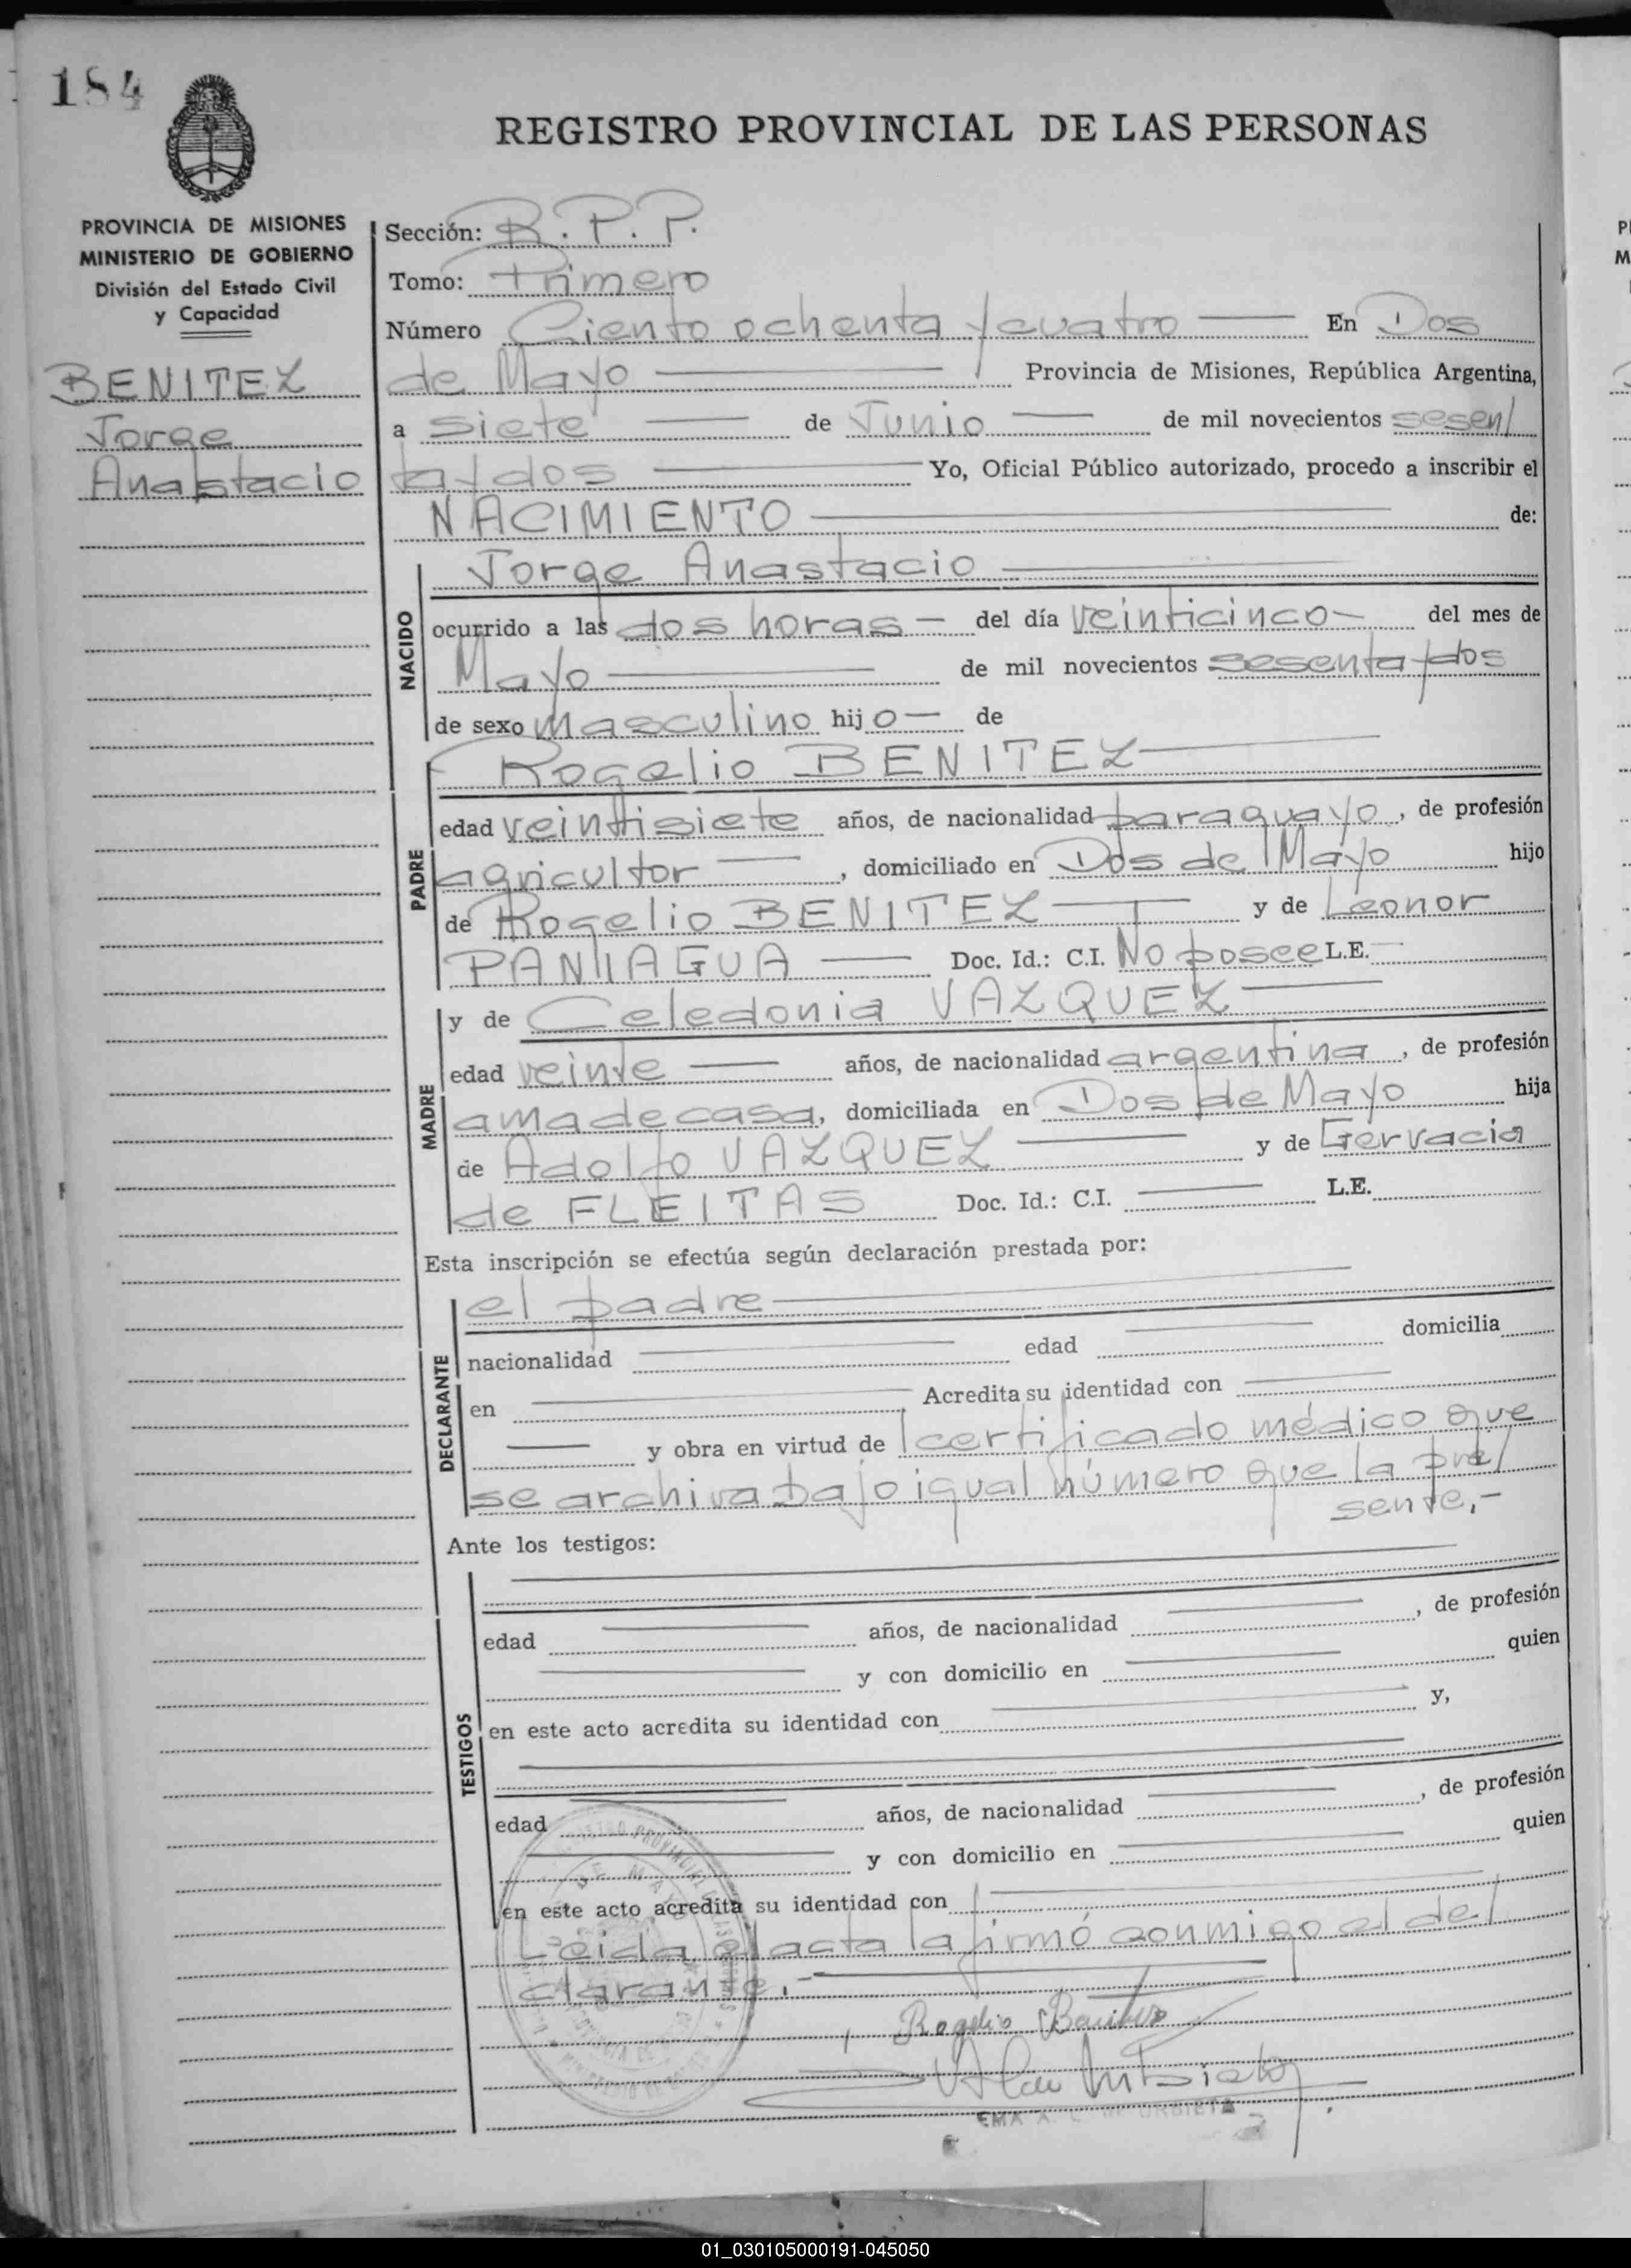 184
REGISTRO PROVINCIAL DE LAS PERSONAS
PROVINCIA DE MISIONES
MINISTERIO DE GOBIERNO
División del Estado Civil
y Capacidad
BENITEZ
Jorge
Anastacio
Sección: R.P.P.
Tomo: Primero
Número Ciento ochenta y cuatro En Dos
de Mayo Provincia de Misiones, República Argentina,
a siete de Junio de mil novecientos sesen/
ta y dos Yo, Oficial Público autorizado, procedo a inscribir el
NACIMIENTO de:
NACIDO
Jorge Anastacio
ocurrido a las dos horas — del día veinticinco — del mes de
Mayo de mil novecientos sesenta y dos
de sexo masculino hijo — de
PADRE
Rogelio BENITEZ
edad veintisiete años, de nacionalidad paraguayo, de profesión
agricultor, domiciliado en Dos de Mayo hijo
de Rogelio BENITEZ y de Leonor
PANIAGUA Doc. Id.: C.I. No posee L.E.
MADRE
y de Celedonia VAZQUEZ
edad veinte años, de nacionalidad argentina, de profesión
ama de casa, domiciliada en Dos de Mayo hija
de Adolfo VAZQUEZ y de Gervacia
de FLEITAS Doc. Id.: C.I. L.E.
Esta inscripción se efectúa según declaración prestada por:
DECLARANTE
el padre
nacionalidad edad domicilia
en Acredita su identidad con
y obra en virtud de certificado médico que
se archiva bajo igual número que la pre/
sente.-
Ante los testigos:
TESTIGOS
edad años, de nacionalidad , de profesión
y con domicilio en quien
en este acto acredita su identidad con y,
edad años, de nacionalidad , de profesión
y con domicilio en quien
en este acto acredita su identidad con
Leida el acta la firmó conmigo el de/
clarante.-
Rogelio Benitez
EMA A. DE URBIETA
01_030105000191-045050